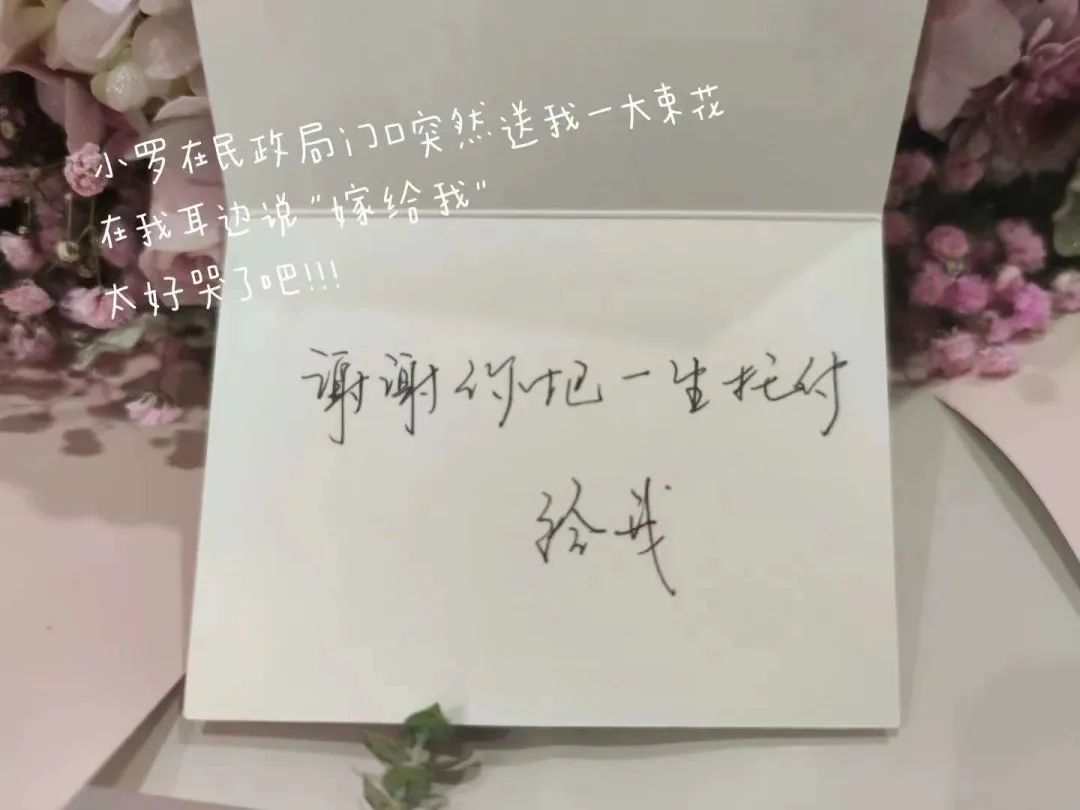 小罗在民政局门口突然送我一大束花
在我耳边说“嫁给我”
太好哭了吧!!!
谢谢你把一生托付
给我